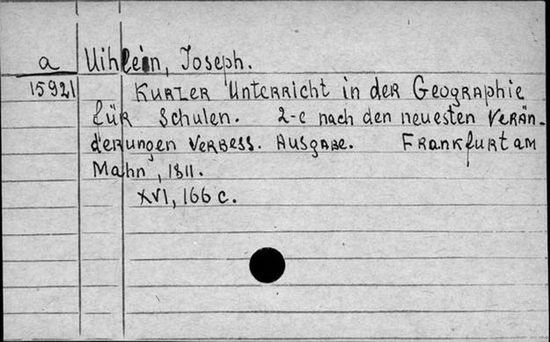 a Uihlein, Joseph.
15921 Kurzer Unterricht in der Geographie
für Schulen. 2-e nach den neuesten Verän-
derungen verbess. Ausgabe. Frankfurt am
Mahn, 1811.
XVI, 166 c.